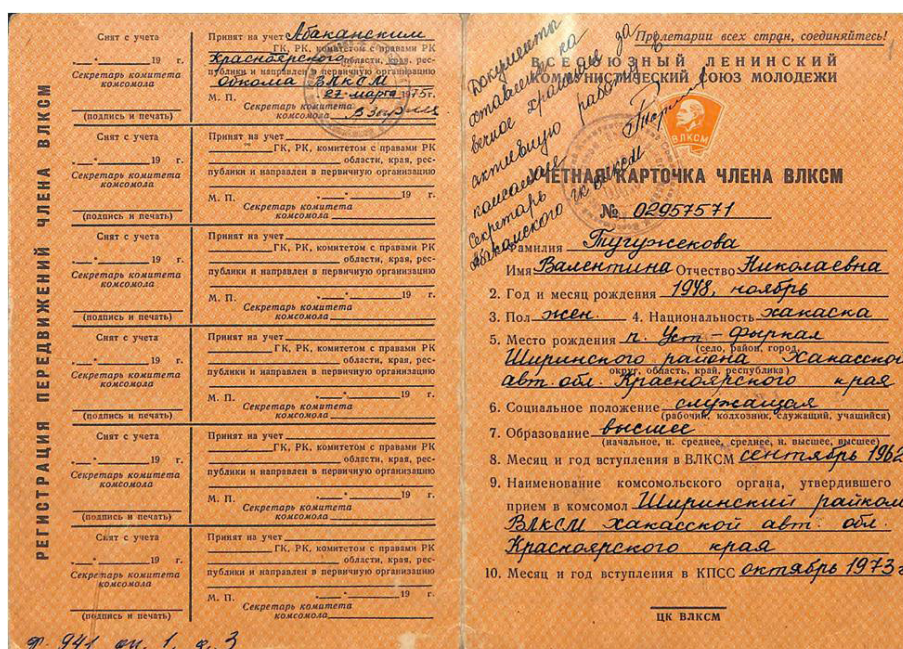 РЕГИСТРАЦИЯ ПЕРЕДВИЖЕНИЙ ЧЛЕНА ВЛКСМ
Снят с учета
"__"____19 г.
Секретарь комитета
комсомола
(подпись и печать)
Принят на учет Абаканским
ГК, РК, комитетом с правами РК
Красноярского области, края, рес-
публики и направлен в первичную организацию
обкома ВЛКСМ
М. П. "27" марта 1975 г.
Секретарь комитета
комсомола
Снят с учета
"__"____19 г.
Секретарь комитета
комсомола
(подпись и печать)
Принят на учет
ГК, РК, комитетом с правами РК
области, края, рес-
публики и направлен в первичную организацию
М. П. "__"____19 г.
Секретарь комитета
комсомола
Снят с учета
"__"____19 г.
Секретарь комитета
комсомола
(подпись и печать)
Принят на учет
ГК, РК, комитетом с правами РК
области, края, рес-
публики и направлен в первичную организацию
М. П. "__"____19 г.
Секретарь комитета
комсомола
Снят с учета
"__"____19 г.
Секретарь комитета
комсомола
(подпись и печать)
Принят на учет
ГК, РК, комитетом с правами РК
области, края, рес-
публики и направлен в первичную организацию
М. П. "__"____19 г.
Секретарь комитета
комсомола
Снят с учета
"__"____19 г.
Секретарь комитета
комсомола
(подпись и печать)
Принят на учет
ГК, РК, комитетом с правами РК
области, края, рес-
публики и направлен в первичную организацию
М. П. "__"____19 г.
Секретарь комитета
комсомола
Снят с учета
"__"____19 г.
Секретарь комитета
комсомола
(подпись и печать)
Принят на учет
ГК, РК, комитетом с правами РК
области, края, рес-
публики и направлен в первичную организацию
М. П. "__"____19 г.
Секретарь комитета
комсомола
ф. 941 оп. 1, д. 3
Документы
оставлены на
вечное хранение за
активную работу в
комсомоле
Секретарь
Абаканского ГК ВЛКСМ
Пролетарии всех стран, соединяйтесь!
ВСЕСОЮЗНЫЙ ЛЕНИНСКИЙ
КОММУНИСТИЧЕСКИЙ СОЮЗ МОЛОДЕЖИ
ВЛКСМ
УЧЕТНАЯ КАРТОЧКА ЧЛЕНА ВЛКСМ
№ 02957571
Фамилия Тугужекова
Имя Валентина Отчество Николаевна
2. Год и месяц рождения 1948, ноябрь
3. Пол жен. 4. Национальность хакаска
5. Место рождения п. Уст-Фыркал
(село, район, город,
Ширинского района Хакасской
округ, область, край, республика)
авт. обл. Красноярского края
6. Социальное положение служащая
(рабочий, колхозник, служащий, учащийся)
7. Образование высшее
(начальное, н. среднее, среднее, н. высшее, высшее)
8. Месяц и год вступления в ВЛКСМ сентябрь 1962
9. Наименование комсомольского органа, утвердившего
прием в комсомол Ширинский райком
ВЛКСМ хакасской авт. обл.
Красноярского края
10. Месяц и год вступления в КПСС октябрь 1973 г
ЦК ВЛКСМ